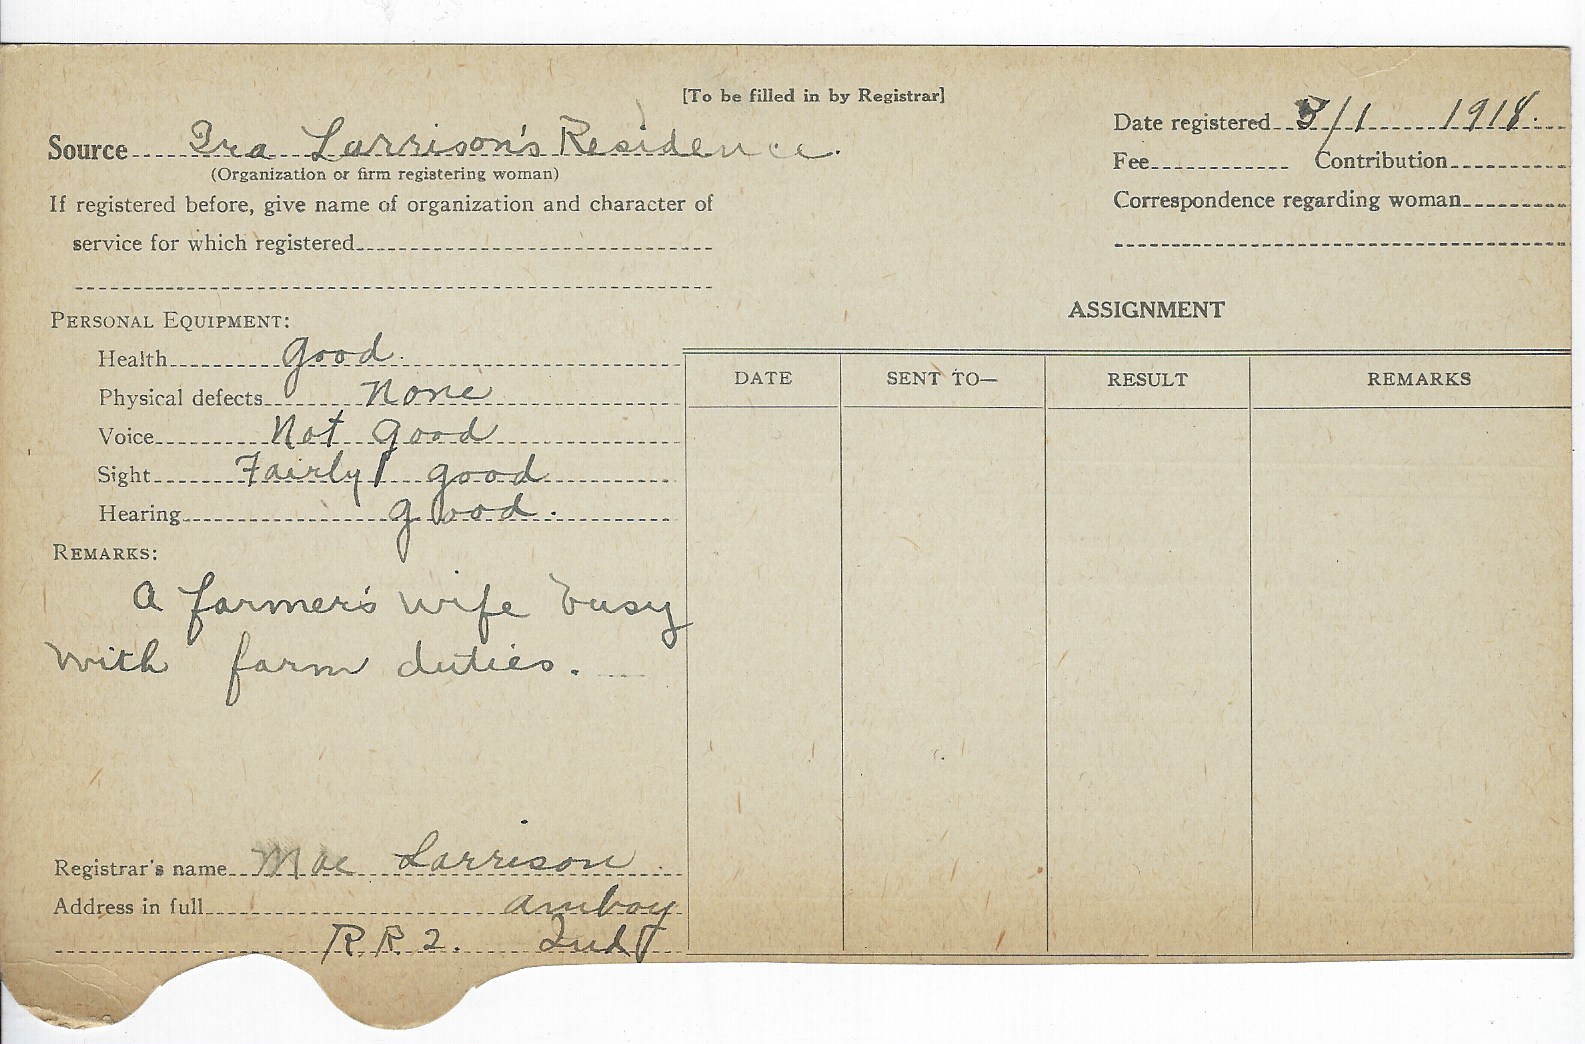 [To be filled in by Registrar]
Source Ira Larrison's Residence.
(Organization or firm registering woman)
If registered before, give name of organization and character of
service for which registered
Date registered 5/1 1918.
Fee Contribution
Correspondence regarding woman
PERSONAL EQUIPMENT:
Health good.
Physical defects none
Voice Not good
Sight Fairly good
Hearing good.
REMARKS:
A farmer's wife busy
with farm duties.
Registrar's name Mae Larrison
Address in full Amboy
R R 2. Ind
ASSIGNMENT
DATE SENT TO— RESULT REMARKS